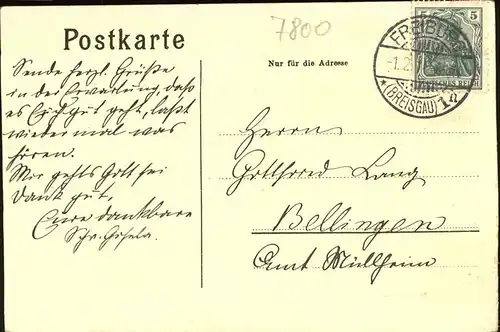 7800
Postkarte
Nur für die Adresse
5 5
FREIBURG
-1.2.
*(BREISGAU) 1
DEUTSCHES REICH
Sende herzl. Grüße
in der Erwartung, daß
es Euch gut geht, laßt
wieder mal was
hören.
Mir gehts Gott sei
Dank gut,
Eure dankbare
Schw. Gisela.
Herrn
Gottfried Lang
Bellingen
Amt Müllheim